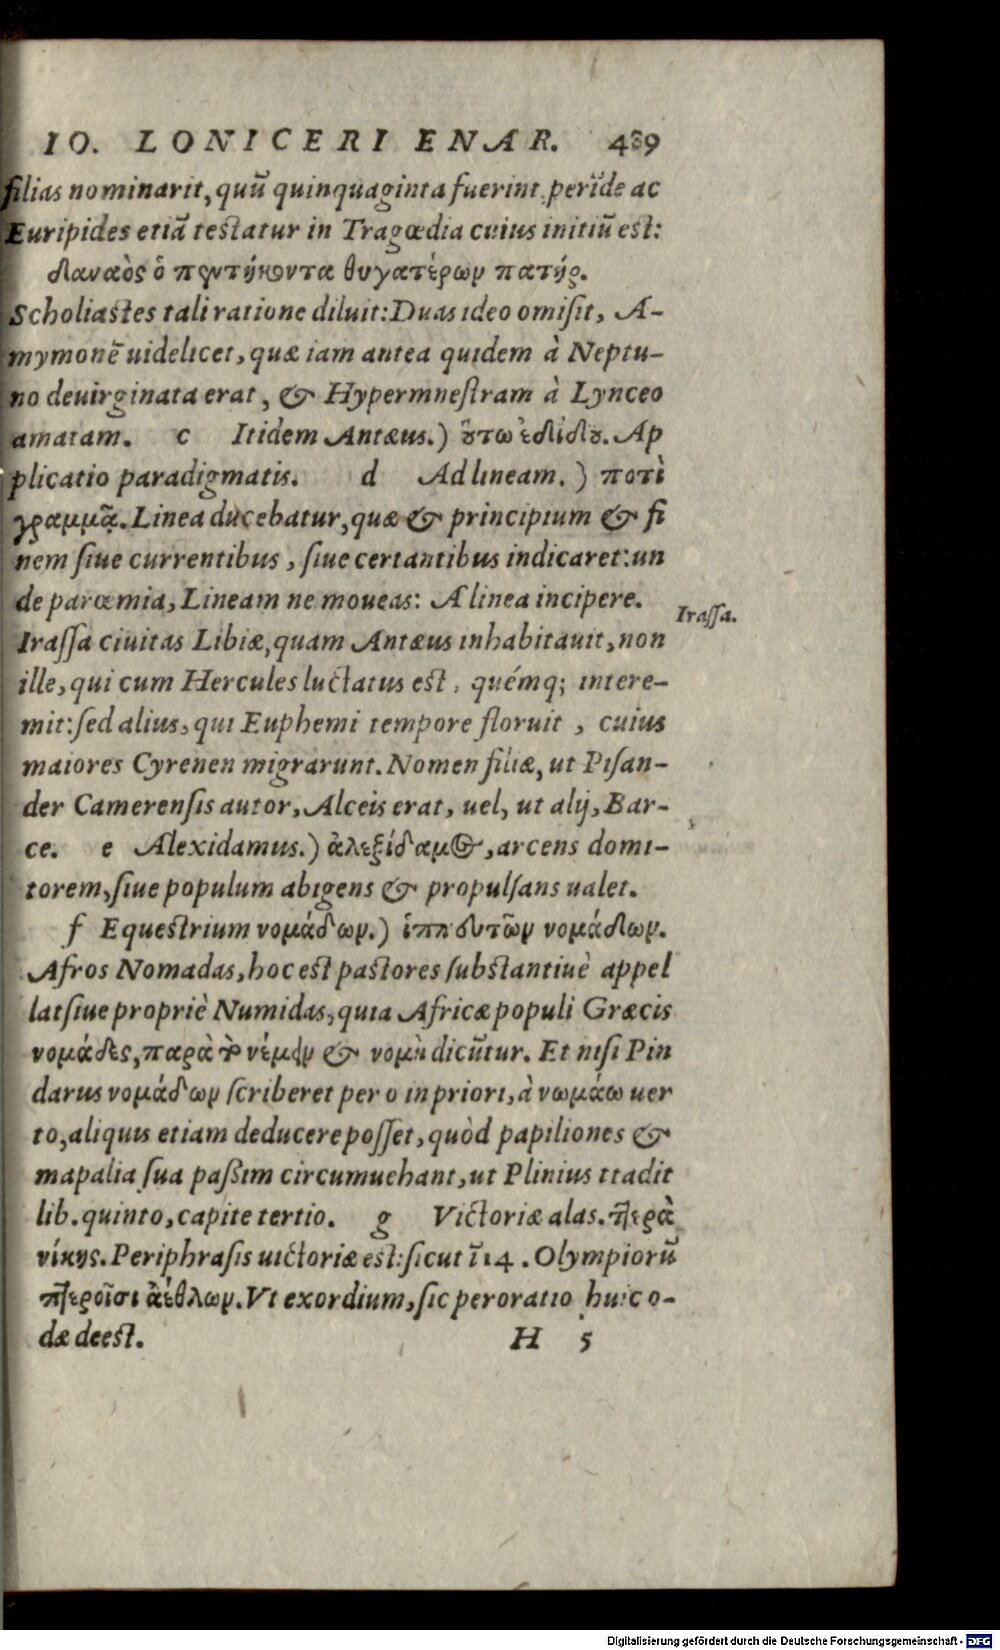 IO. LONICERI ENAR. 489
filias nominarit, quũ quinquaginta fuerint, perĩde ac
Euripides etiã testatur in Tragœdia cuius initiũ est:
δαναὸς ὁ πεντήκοντα θυγατέρων πατήρ.
Scholiastes tali ratione diluit: Duas ideo omisit, A-
mymonẽ uidelicet, quæ iam antea quidem à Neptu-
no deuirginata erat, & Hypermnestram à Lynceo
amatam. c Itidem Antæus.) ȣ̔́τω ἐδίδȣ. Ap
plicatio paradigmatis. d Ad lineam.) ποτὶ
γραμμᾷ. Linea ducebatur, quæ & principium & fi
nem siue currentibus, siue certantibus indicaret: un
de parœmia, Lineam ne moueas: A linea incipere.
Irassa.
Irassa ciuitas Libiæ, quam Antæus inhabitauit, non
ille, qui cum Hercules luctatus est, quémq; intere-
mit: sed alius, qui Euphemi tempore floruit, cuius
maiores Cyrenen migrarunt. Nomen filiæ, ut Pisan-
der Camerensis autor, Alceis erat, uel, ut alij, Bar-
ce. e Alexidamus.) ἀλεξίδαμος, arcens domi-
torem, siue populum abigens & propulsans ualet.
f Equestrium νομάδων.) ἱππευτῶν νομάδων.
Afros Nomadas, hoc est pastores substantiuè appel
lat siue propriè Numidas, quia Africæ populi Græcis
νομάδες, παρὰ τὸ νέμειν & νομὴ dicũtur. Et nisi Pin
darus νομάδων scriberet per o in priori, à νωμάω uer
to, aliquis etiam deducere posset, quòd papiliones &
mapalia sua paßim circumuehant, ut Plinius ttadit
lib. quinto, capite tertio. g Victoriæ alas. πτερὰ
νίκης. Periphrasis uictoriæ est: sicut ĩ 14. Olympiorũ
πτεροῖσι ἀέθλων. Vt exordium, sic peroratio huic o-
dæ deest. H 5
Digitalisierung gefördert durch die Deutsche Forschungsgemeinschaft - DFG